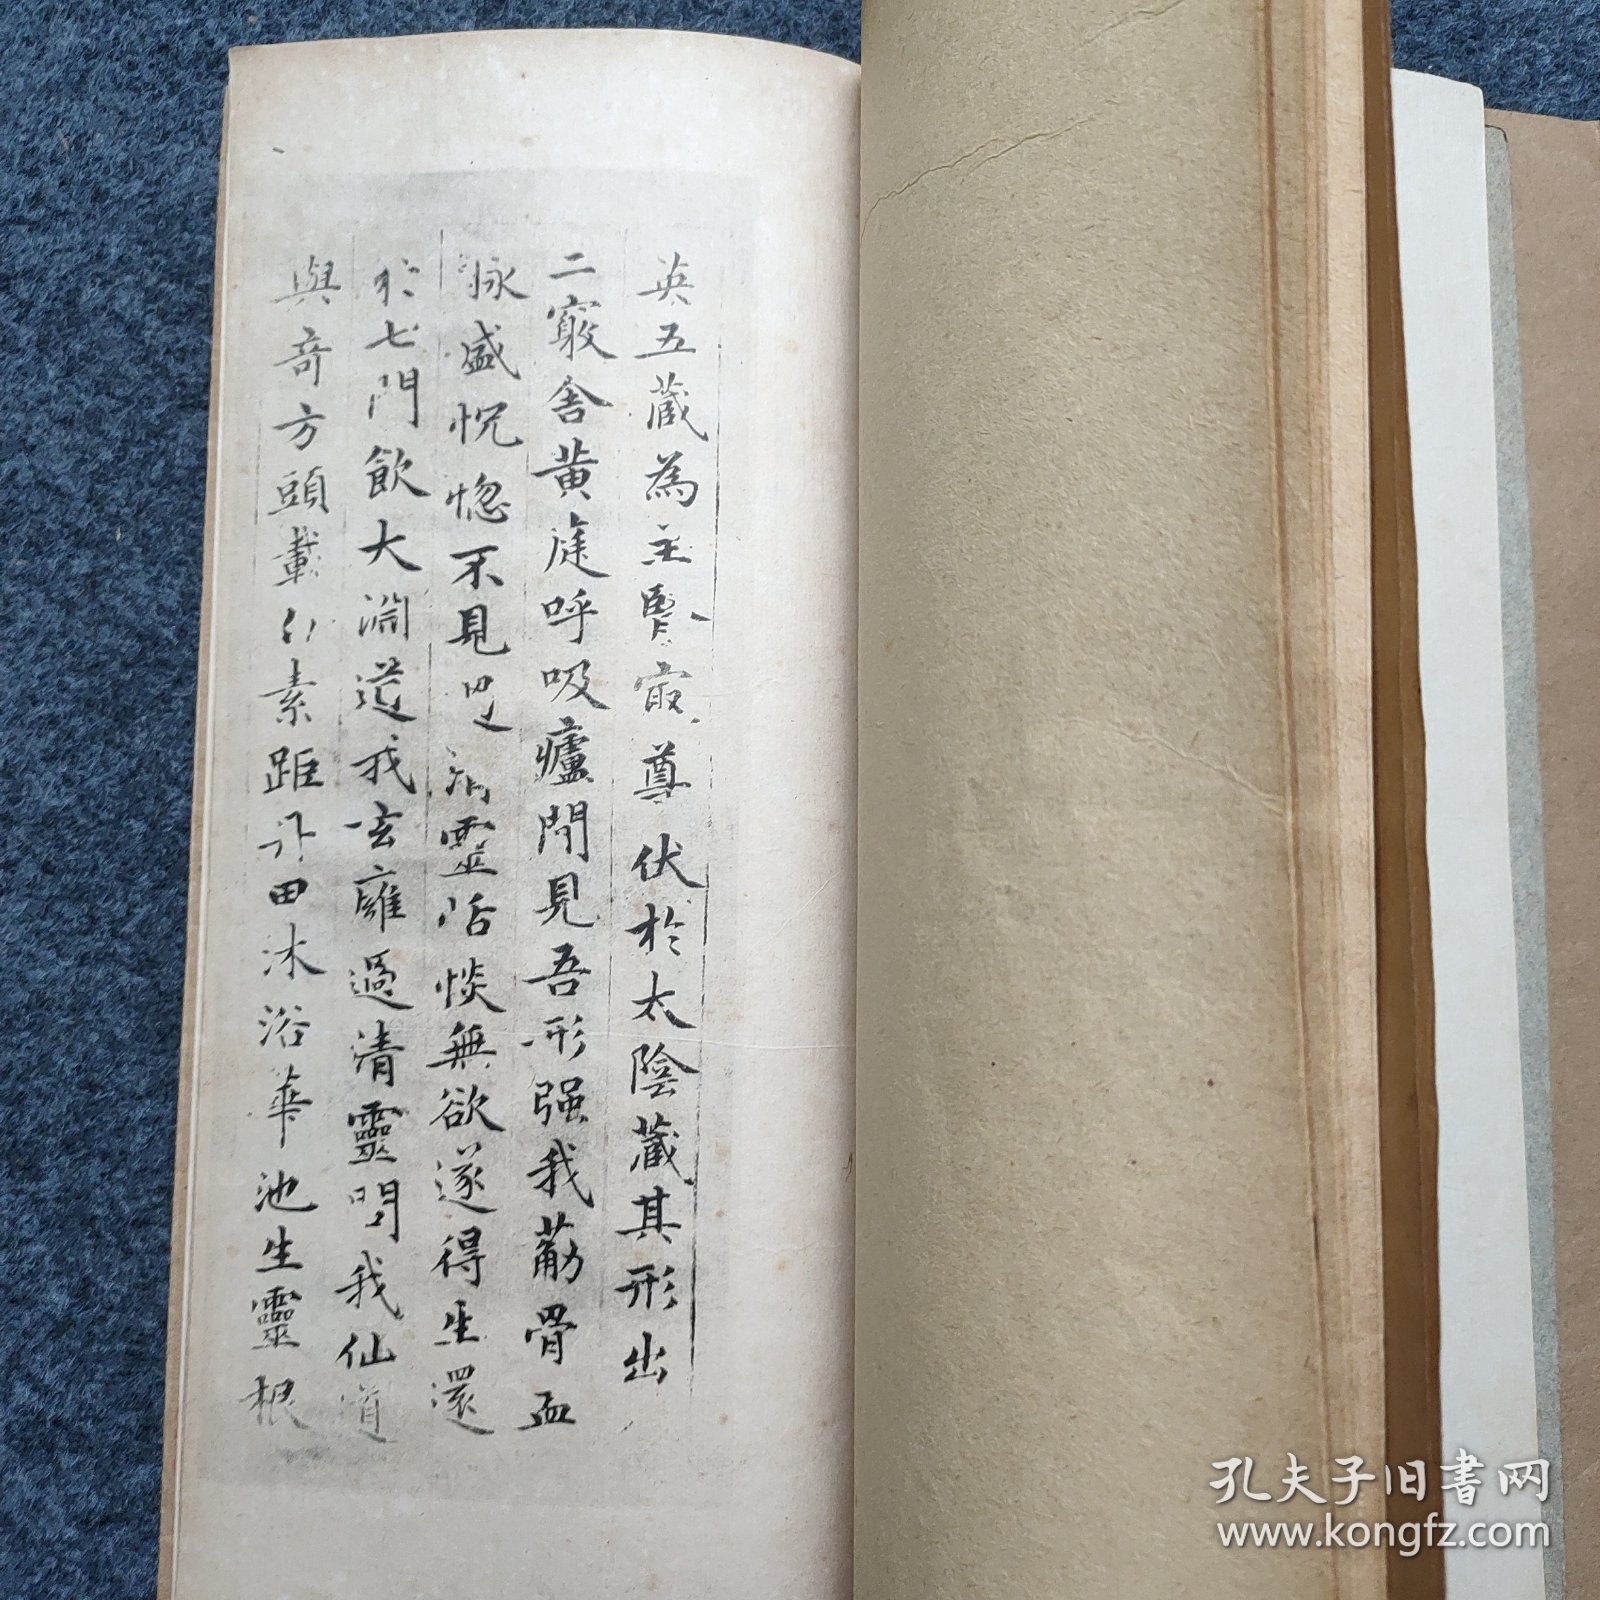 英五藏為主腎宼尊伏於太陰藏其形出
二竅舍黄庭呼吸廬間見吾形强我荕骨血
脉盛怳惚不見過清靈恬惔無欲遂得生還
於七門飲大淵道我玄雍過清靈問我仙道
與奇方頭載白素距丹田沐浴華池生靈根
孔夫子旧书网
www.kongfz.com